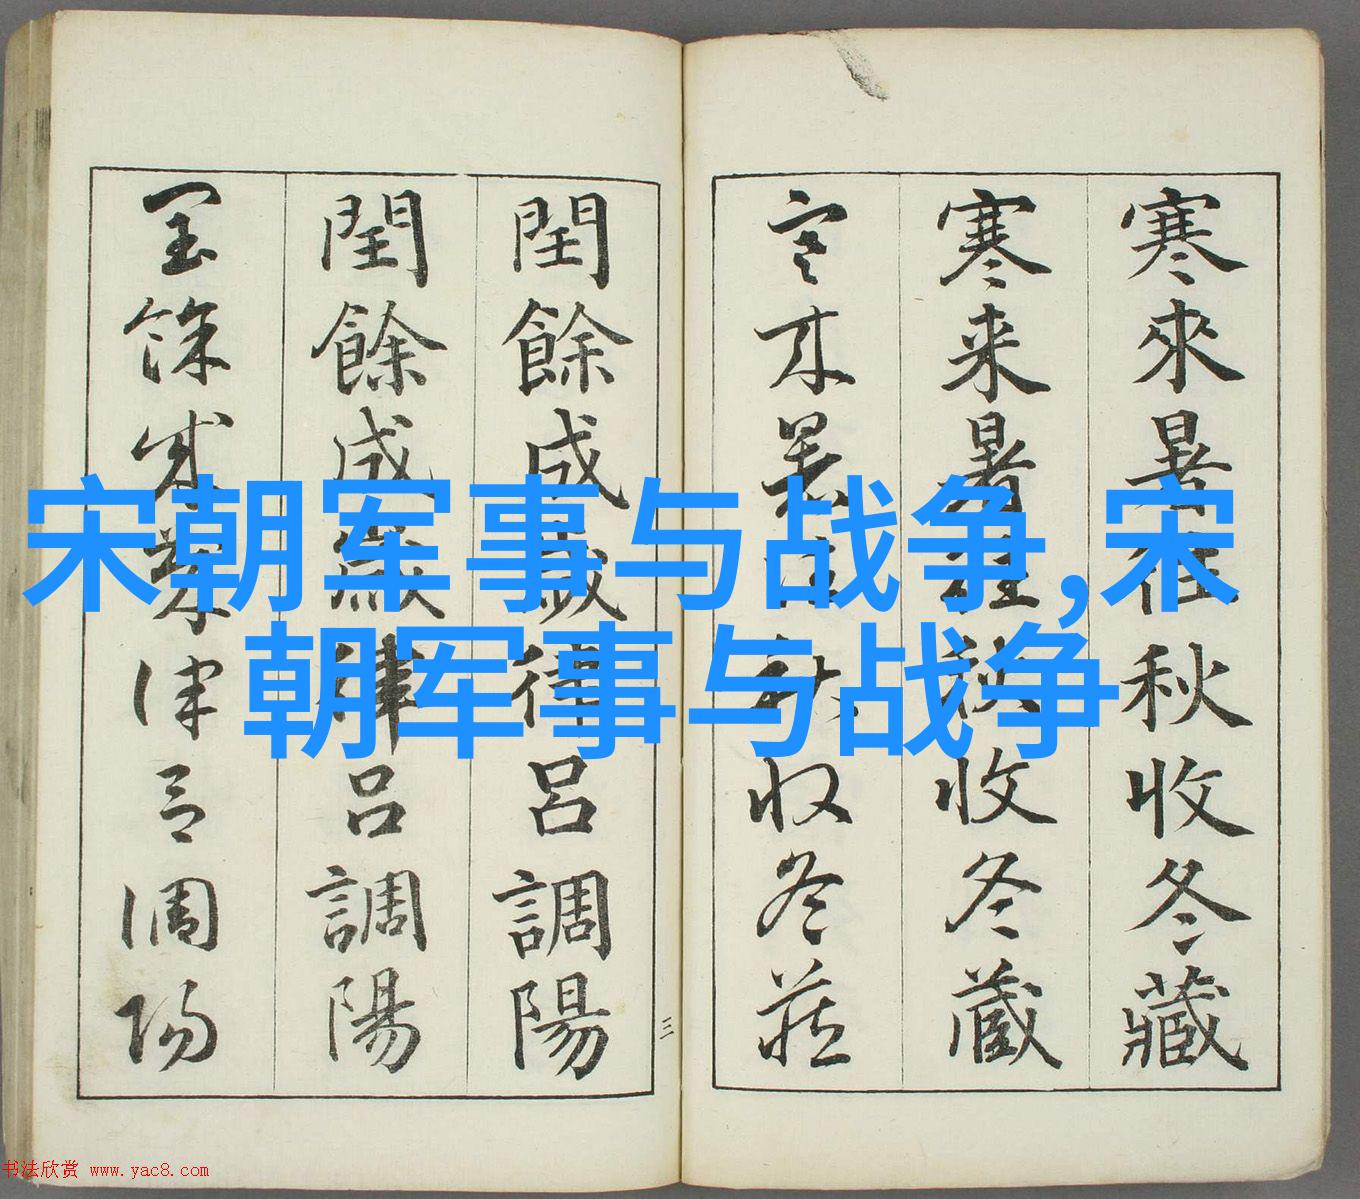 宋朝军事与战争,宋
朝军事与战争
寒來暑往秋收冬藏
寒来暑往秋收冬蔵
寒来暑往秋收冬藏
三
閏餘成歲律呂調陽
閏餘成歲律呂調陽
閏餘成歲律呂調陽
书法欣赏 www.yac8.com